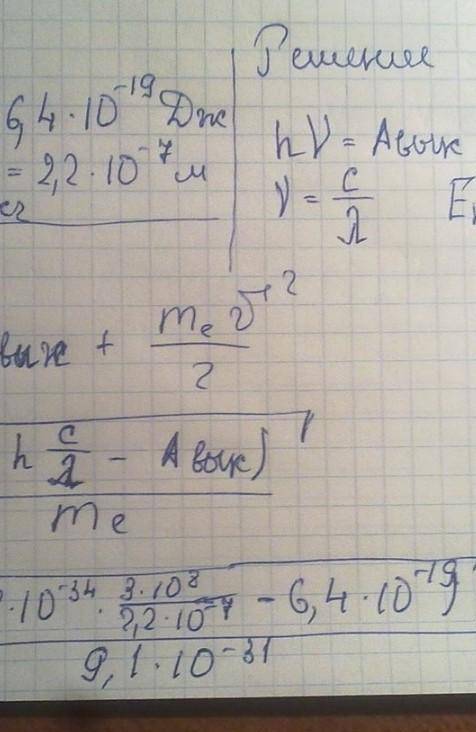 6,4·10⁻¹⁹ Дж
= 2,2·10⁻⁷ м
Решение
hν = Aвых
ν = c/λ E
вых + mₑ v²/2
h c/λ − Aвых)
mₑ
·10⁻³⁴ · 3·10⁸/2,2·10⁻⁷ − 6,4·10⁻¹⁹)
9,1·10⁻³¹